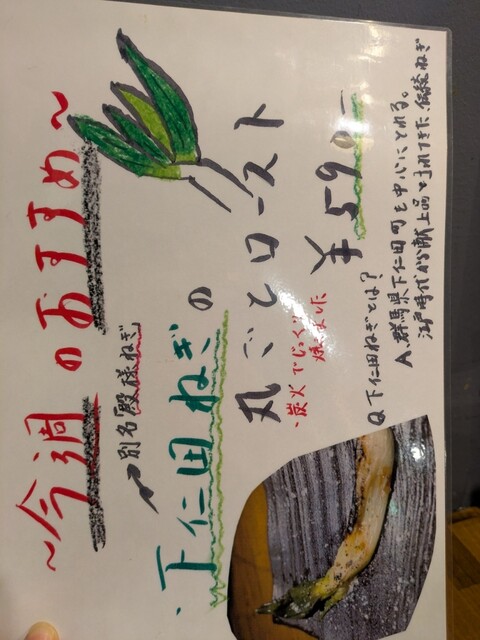 ～今週のおすすめ～
別名殿様ねぎ
下仁田ねぎの
丸ごとロースト
・炭火でじっくり
焼きました
¥590-
Q.下仁田ねぎとは？
A.群馬県下仁田町を中心にとれる。
江戸時代から献上品とされてきた伝統ねぎ